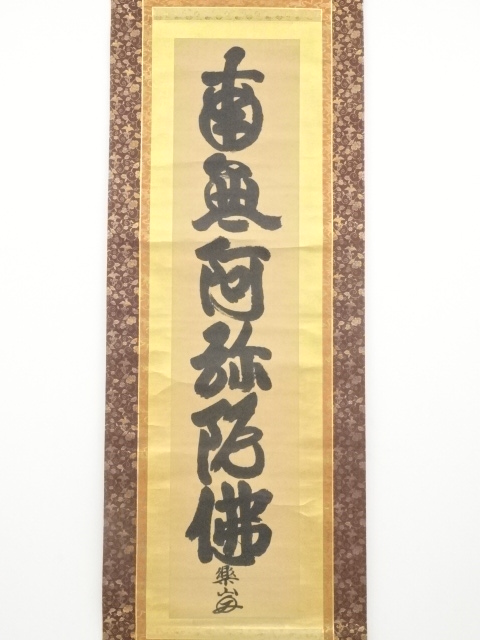 南無阿弥陀佛
樂山